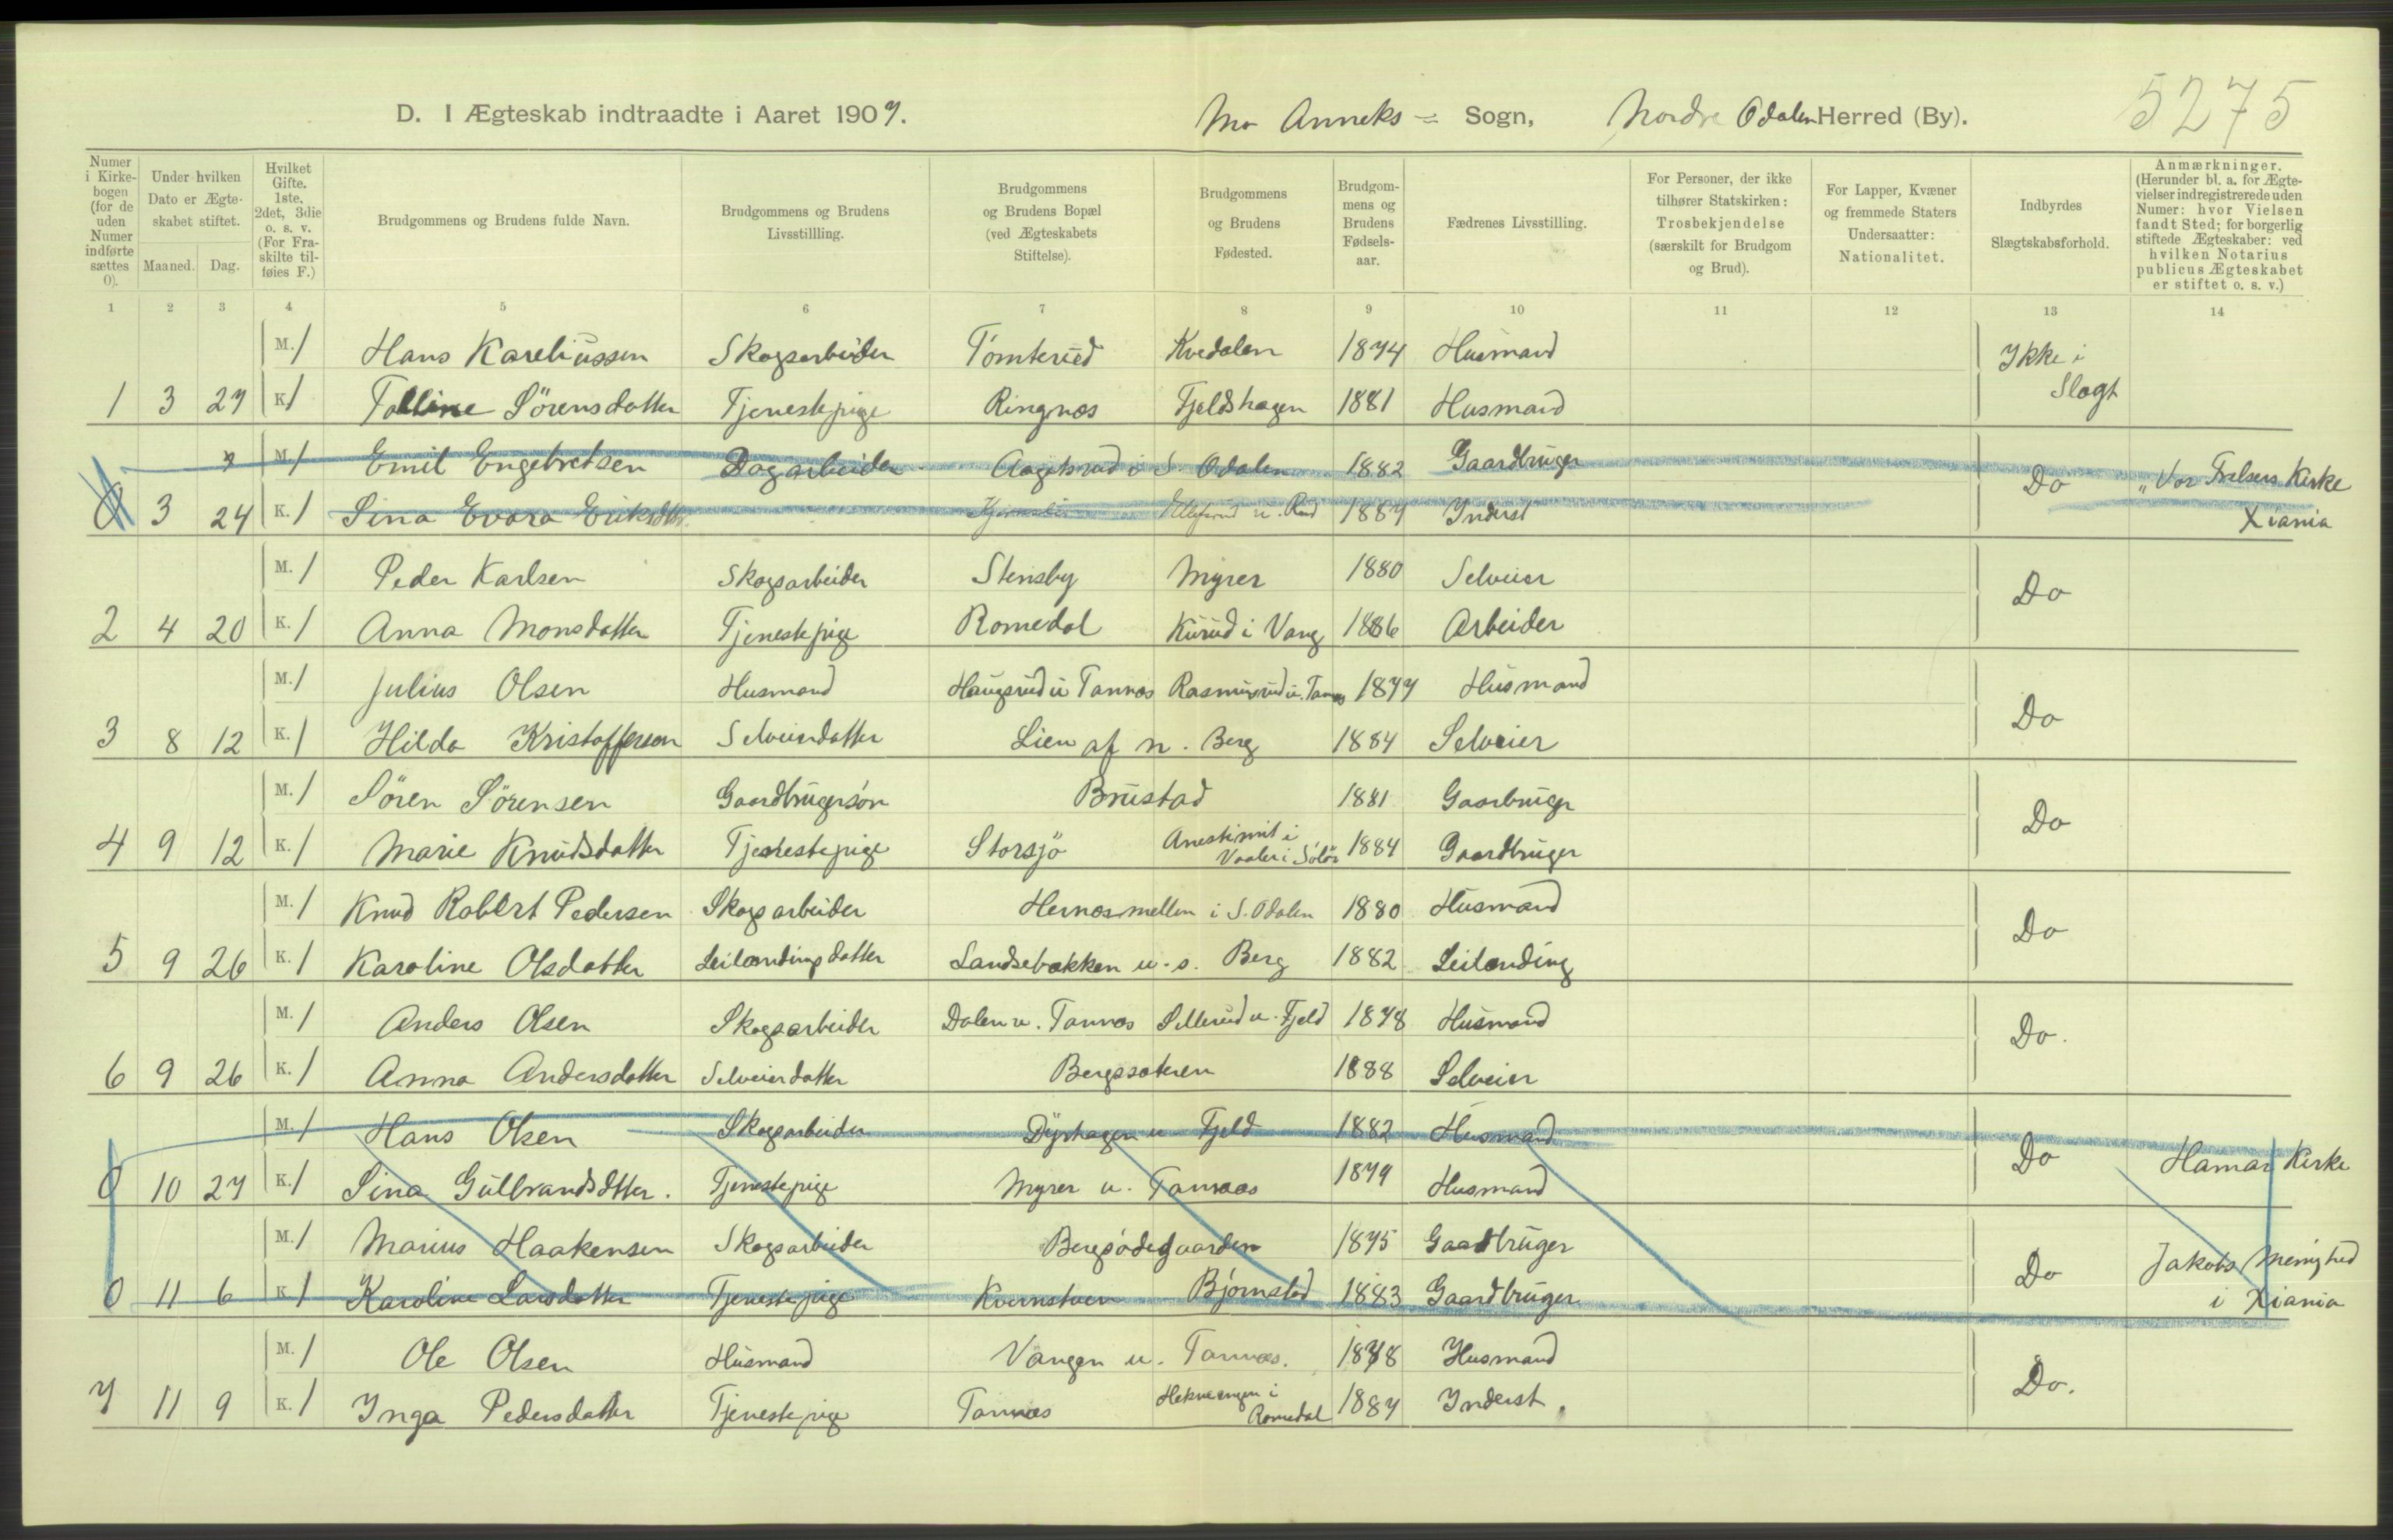 D. I Ægteskab indtraadte i Aaret 1907. Mo Anneks = Sogn, Nordre Odalen Herred (By). 5275
Numer i Kirkebogen (for de uden Numer indførte sættes 0).
Under hvilken Dato er Ægteskabet stiftet.
Maaned. Dag.
Hvilket Gifte. 1ste, 2det, 3die o. s. v. (For Fraskilte tilføies F.)
Brudgommens og Brudens fulde Navn.
Brudgommens og Brudens Livsstillling.
Brudgommens og Brudens Bopæl (ved Ægteskabets Stiftelse).
Brudgommens og Brudens Fødested.
Brudgommens og Brudens Fødselsaar.
Fædrenes Livsstilling.
For Personer, der ikke tilhører Statskirken: Trosbekjendelse (særskilt for Brudgom og Brud).
For Lapper, Kvæner og fremmede Staters Undersaatter: Nationalitet.
Indbyrdes Slægtskabsforhold.
Anmærkninger. (Herunder bl. a. for Ægtevielser indregistrerede uden Numer: hvor Vielsen fandt Sted; for borgerlig stiftede Ægteskaber: ved hvilken Notarius publicus Ægteskabet er stiftet o. s. v.)
1 2 3 4 5 6 7 8 9 10 11 12 13 14
M. 1 Hans Kareliussen Skogsarbeider Tomterud Kvedalen 1874 Husmand Ikke i
1 3 27 K. 1 Talline Sörensdatter Tjenestepige Ringnes Fjeldshagen 1881 Husmand Slægt
M. 1 Emil Engebretsen Dagarbeider i S. Odalen 1882 Gaardbruger Do Vor Frelsers Kirke
0 3 24 K. 1 Sina Evora Eriksdtr. 1887 Inderst Xiania
M. 1 Peder Karlsen Skogsarbeider Stensby Myrer 1880 Selveier Do
2 4 20 K. 1 Anna Monsdatter Tjenestepige Romedal Kurud i Vang 1886 Arbeider
M. 1 Julius Olsen Husmand Haugsrud u Tannæs Rasmusrud u. Tannæs 1877 Husmand
3 8 12 K. 1 Hilda Kristoffersen Selveierdatter Lien af n. Berg 1884 Selveier Do
M. 1 Sören Sörensen Gaardbrugersön Brustad 1881 Gaarbruger Do
4 9 12 K. 1 Marie Knudsdatter Tjenestepige Storsjö Vaaler i Sölör 1884 Gaardbruger
M. 1 Knud Robert Pedersen Skogsarbeider Hernæsmellen i S. Odalen 1880 Husmand Do
5 9 26 K. 1 Karoline Olsdatter Leilændingsdatter Landsebakken u. s. Berg 1882 Leilænding
M. 1 Anders Olsen Skogsarbeider Dalen u. Tannæs Sillerud u. Fjeld 1878 Husmand Do.
6 9 26 K. 1 Anna Andersdatter Selveierdatter Bergsæteren 1888 Selveier
M. 1 Hans Olsen Skogsarbeider Dyrhagen u Fjeld 1882 Husmand Do Hamar Kirke
0 10 27 K. 1 Sina Gulbrandsdtter. Tjenestepige Myrer u. Tannæs 1879 Husmand
M. 1 Marius Haakensen Skogsarbeider Bergsödegaarden 1875 Gaardbruger Do Jakobs Menighed
0 11 6 K. 1 Karoline Larsdatter Tjenestepige Kvernstuen Björnstad 1883 Gaardbruger i Xiania
M. 1 Ole Olsen Husmand Vangen u. Tannæs. 1878 Husmand Do.
7 11 9 K. 1 Inga Pedersdatter Tjenestepige Tannæs Romedal 1887 Inderst.